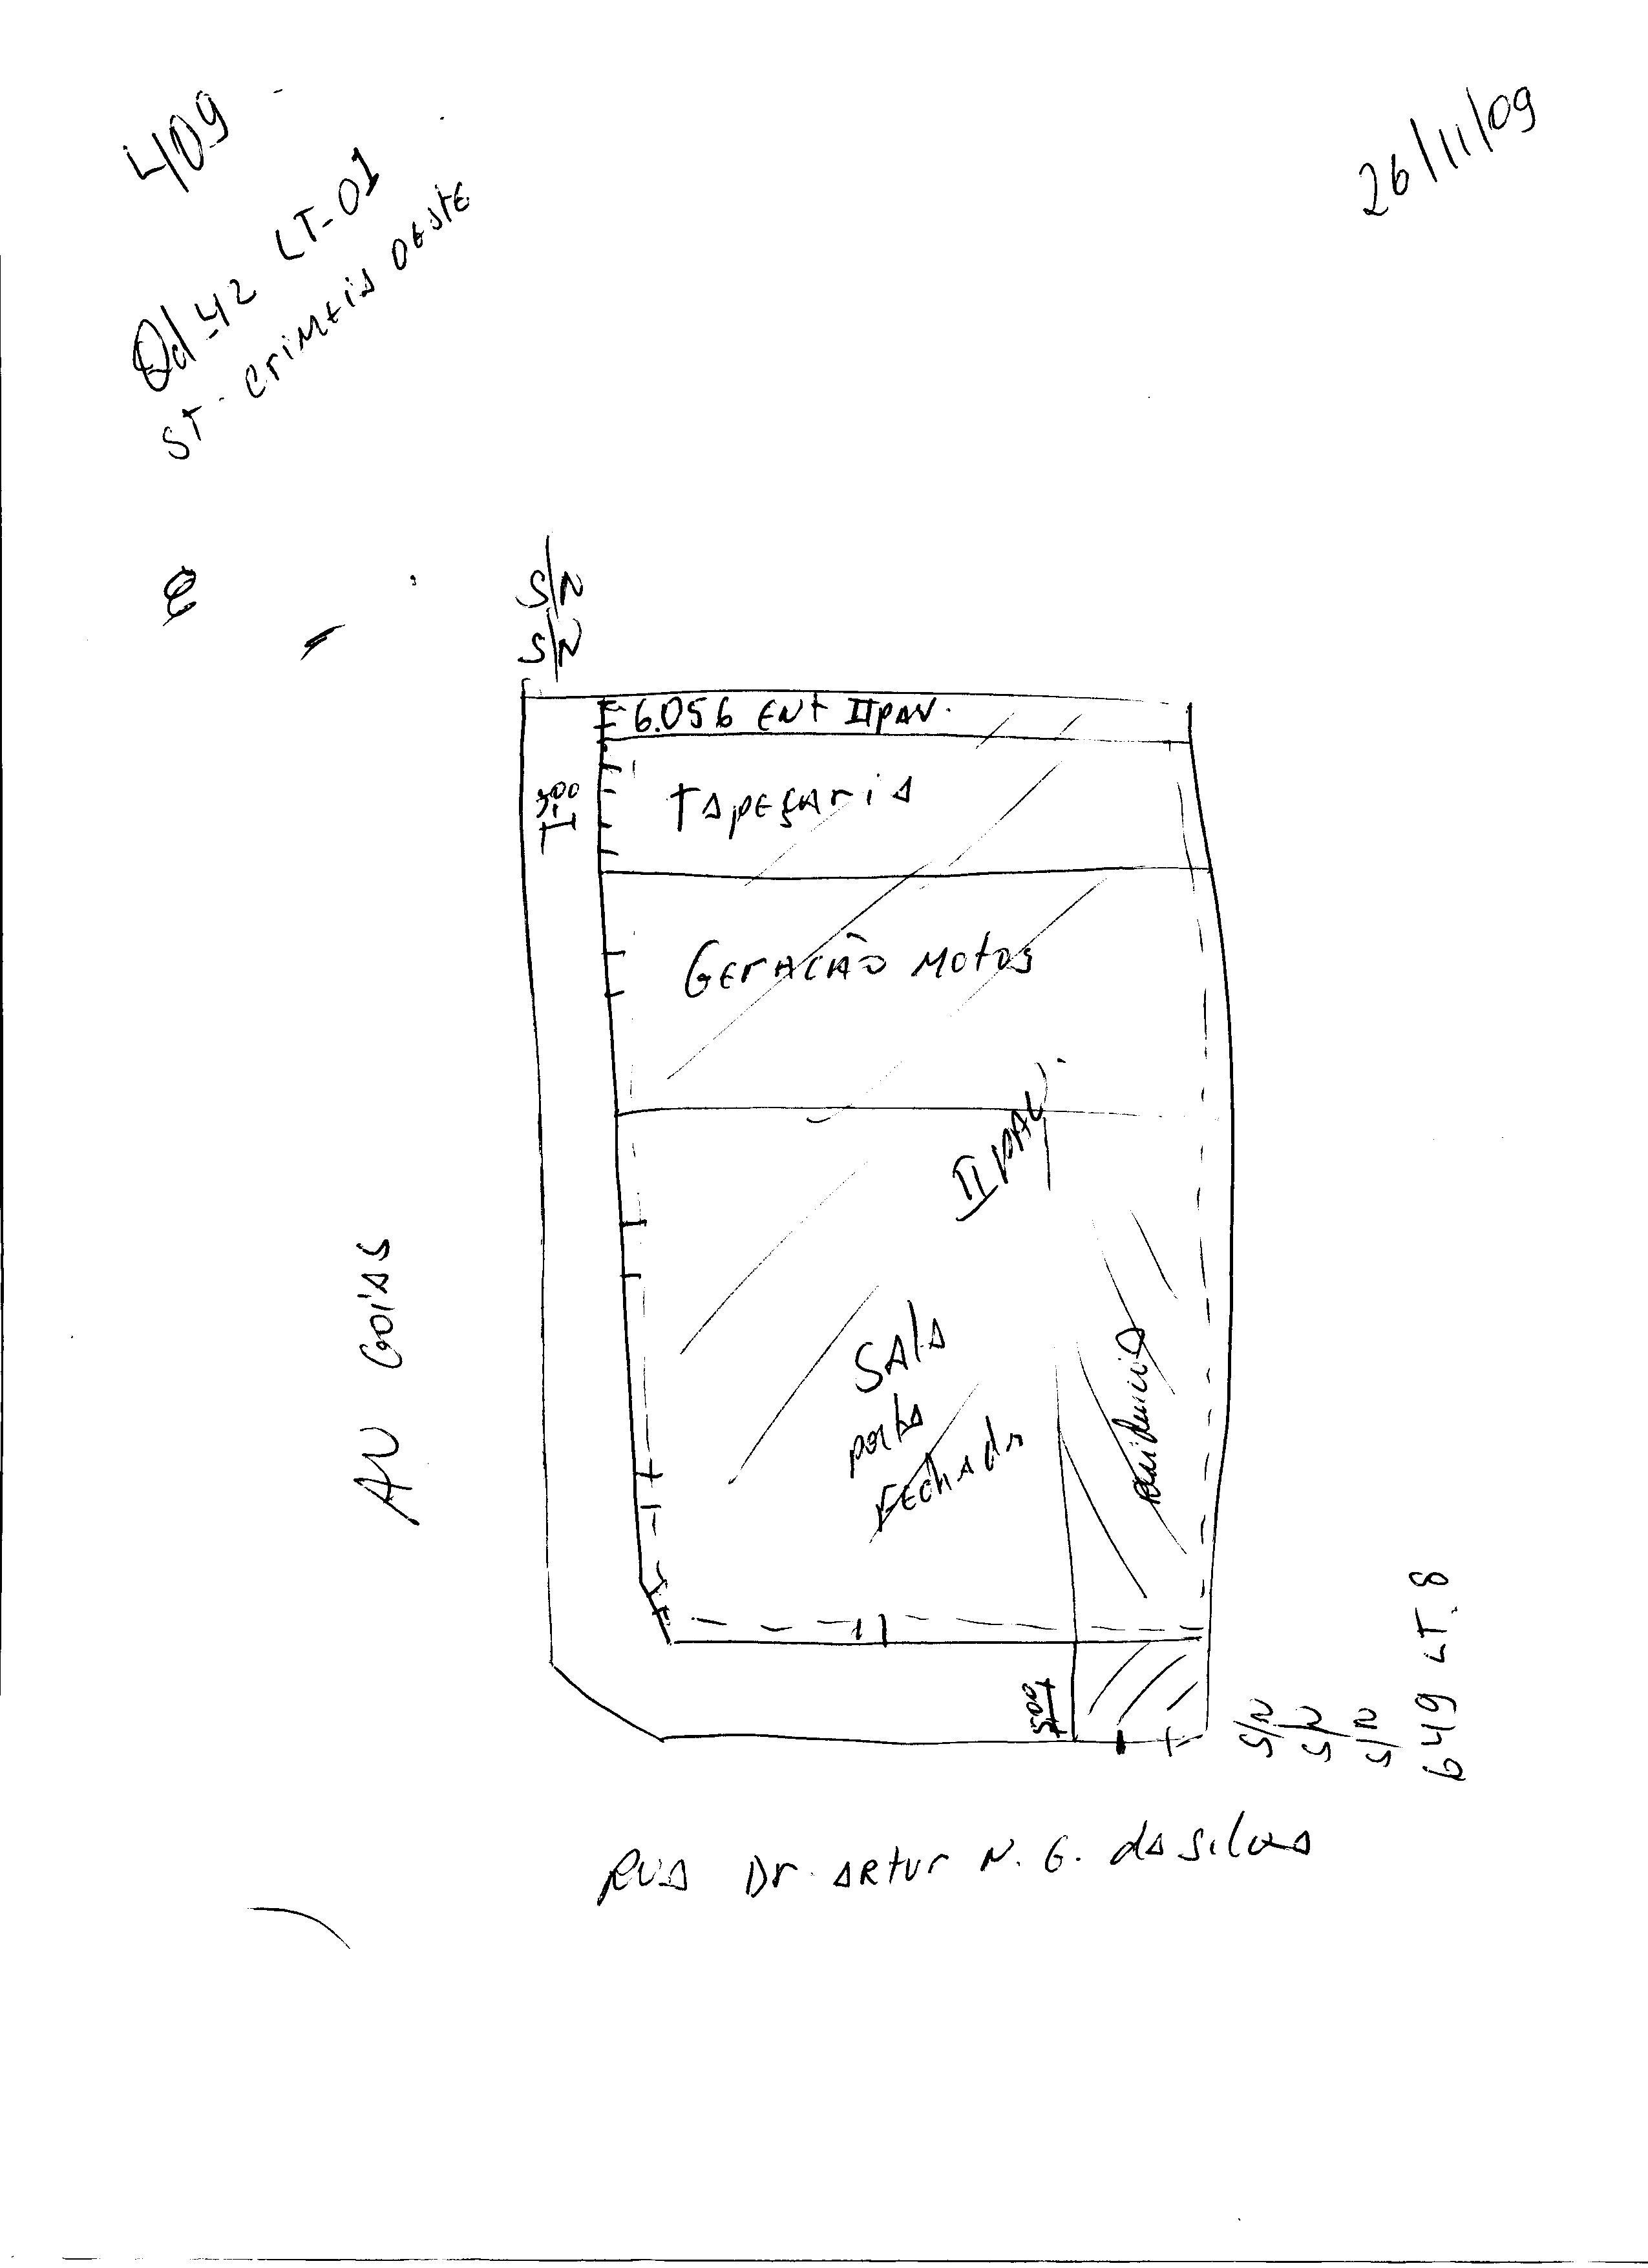 409
26/11/09
Qd-42 LT-01
ST. Criméia Oeste
S/N
S/N
6.056 ENt IIPAV.
5.00
Tapeçaria
GERAÇÃO MOTOS
II PAV.
AV GOIÁS
Sala
porta
Fechada
Residencia
5.00
S/N
S/N
S/N
649 LT. 8
RUA Dr. ARTUR N. G. da Silva